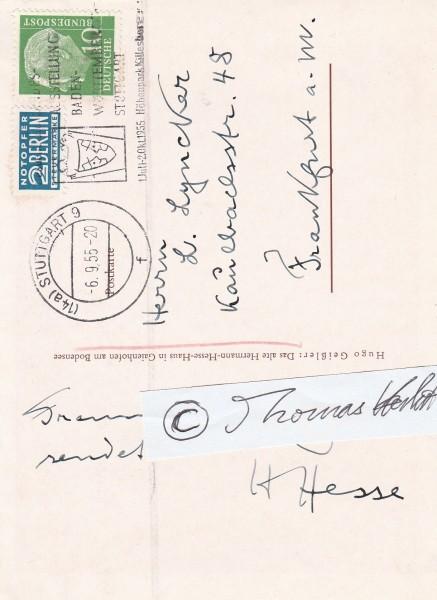 DEUTSCHE
BUNDESPOST
10
NOTOPFER
2 BERLIN
STEUERMARKE
BADEN-
STUTTGART
Höhenpark Killesberg
(14a) STUTTGART 9
-6.9.55-20
f
Postkarte
Herrn
L. Lyncker
Kaulbachstr. 48
Frankfurt a. M.
Hugo Geißler: Das alte Hermann-Hesse-Haus in Gaienhofen am Bodensee
sendet
© Thomas
H Hesse